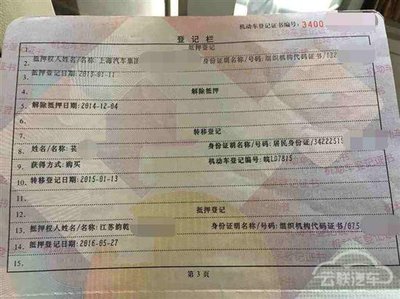 机动车登记证书编号: 3400
登记栏
1. 抵押登记
2. 抵押权人姓名/名称: 上海汽车集团 身份证明名称/号码: 组织机构代码证书/132
3. 抵押登记日期: 2013-01-11
4. 解除抵押
5. 解除抵押日期: 2014-12-04
6.
7. 转移登记
8. 姓名/名称: 身份证明名称/号码: 居民身份证/34222519
9. 获得方式: 购买 机动车登记编号: 皖LD7815
10. 转移登记日期: 2015-01-13
11.
12. 抵押登记
13. 抵押权人姓名/名称: 江苏韵 身份证明名称/号码: 组织机构代码证书/075
14. 抵押登记日期: 2016-05-27
15.
第 3 页
云联汽车